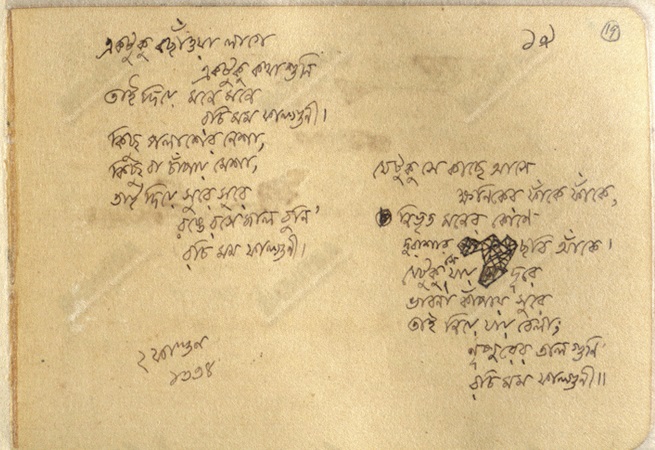 একটুকু ছোঁওয়া লাগে
একটুকু কথা শুনি
তাই দিয়ে মনে মনে
রচি মম ফাল্গুনী।
কিছু পলাশের নেশা,
কিছু বা চাঁপায় মেশা,
তাই দিয়ে সুরে সুরে
রঙে রসে জাল বুনি
রচি মম ফাল্গুনী।
২ ফাল্গুন
১৩৩৪
১৯
19
যেটুকু সে কাছে আসে
ক্ষণিকের ফাঁকে ফাঁকে,
নিভৃত মনের কোণে
দুরাশার ছবি আঁকে।
যেটুকু যায় দূরে
ভাবনা কাঁপায় সুরে
তাই নিয়ে যায় বেলা,
নূপুরের তাল গুনি
রচি মম ফাল্গুনী॥